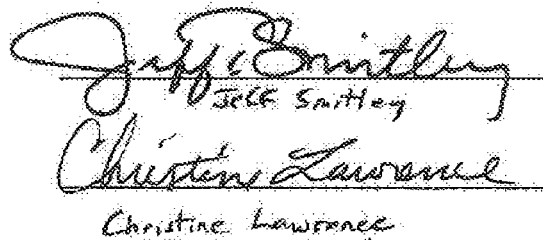 Jeff Smitley
Jeff Smitley
Christine Lawrence
Christine Lawrence